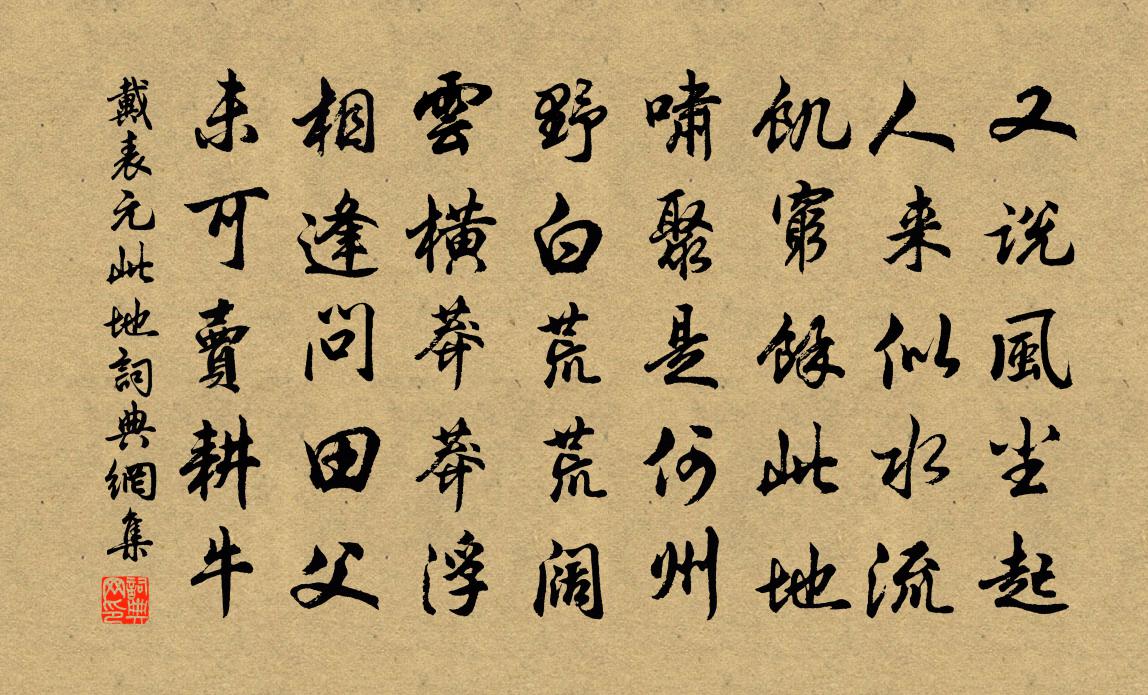 又説風尘起
人来似水流
飢窮餘此地
嘯聚是何州
野白荒荒阔
雲橫莽莽浮
相逢問田父
未可賣耕牛
戴表元此地詞典網集
詞典網印